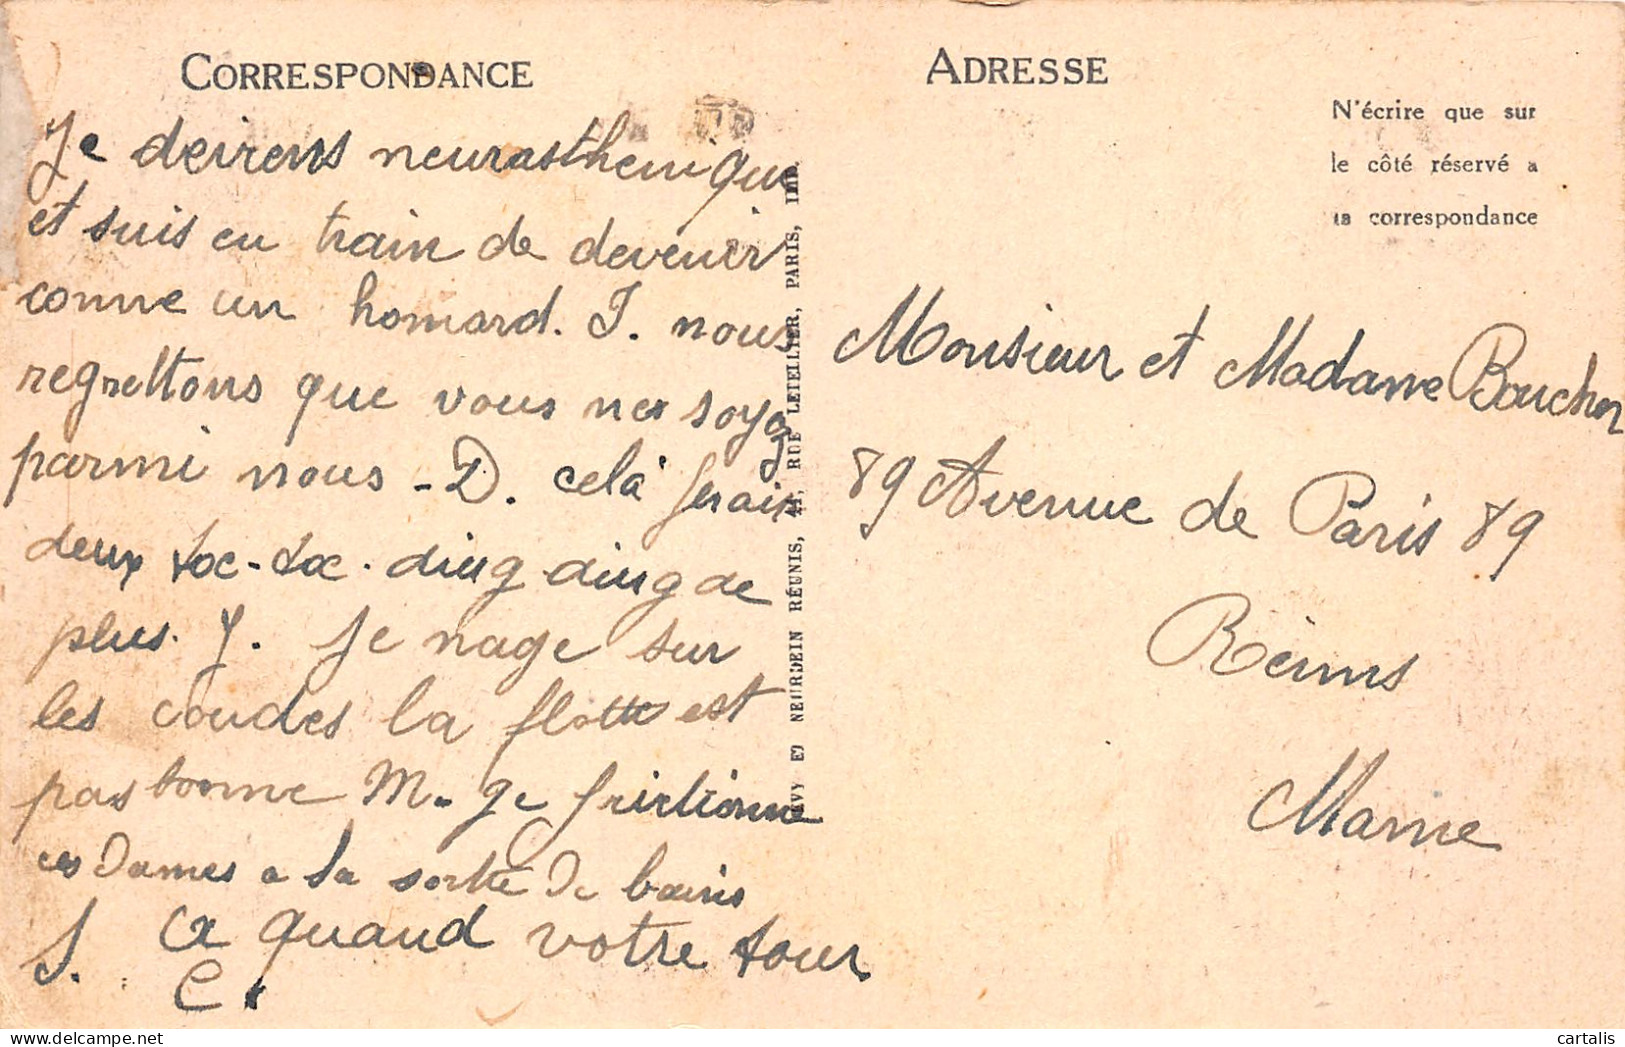 CORRESPONDANCE
Je deviens neurasthenique
et suis en train de devenir
comme un homard. J. nous
regrettons que vous ne soyez
parmi nous - D. celà ferait
deux toc-toc. ding ding de
plus. Y. Je nage sur
les coudes la flotte est
pas bonne M. je frictionne
ces Dames a la sortie de bains
J. a quand votre tour
C.
LEVY ET NEURDEIN RÉUNIS, 44, RUE LETELLIER, PARIS, IMP.
ADRESSE
N'écrire que sur
le côté réservé a
la correspondance
Monsieur et Madame Boucher
89 Avenue de Paris 89
Reims
Marne
cartalis